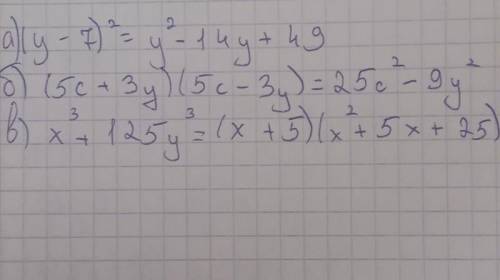 а) (y - 7)² = y² - 14y + 49
б) (5c + 3y)(5c - 3y) = 25c² - 9y²
в) x³ + 125y³ = (x + 5)(x² + 5x + 25)